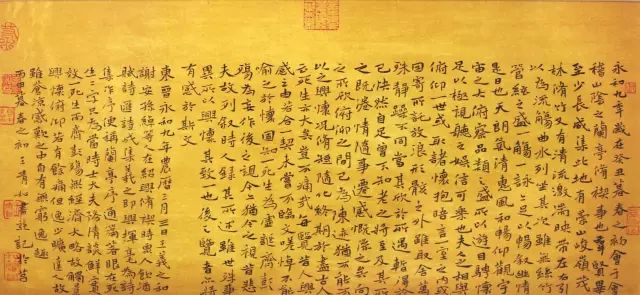 永和九年歲在癸丑暮春之初會于會
稽山陰之蘭亭脩禊事也群賢畢
至少長咸集此地有崇山峻嶺茂
林脩竹又有清流激湍映帶左右引
以為流觴曲水列坐其次雖無絲竹
管絃之盛一觴一詠亦足以暢敘幽情
是日也天朗氣清惠風和暢仰觀宇
宙之大俯察品類之盛所以遊目騁懷
足以極視聽之娛信可樂也夫人之相與
俯仰一世或取諸懷抱晤言一室之內或
因寄所託放浪形骸之外雖取舍萬
殊靜躁不同當其欣於所遇暫得於
己快然自足曾不知老之將至及其所
之既倦情隨事遷感慨係之矣向
之所欣俯仰之間已為陳迹猶不能不
以之興懷況脩短隨化終期於盡古人
云死生亦大矣豈不痛哉每覽昔人興
感之由若合一契未嘗不臨文嗟悼不能
喻之於懷固知一死生為虛誕齊彭
殤為妄作後之視今亦猶今之視昔悲
夫故列敘時人錄其所述雖世殊事
異所以興懷其致一也後之覽者亦將
有感於斯文
東晉永和九年農曆三月三日王羲之和
謝安孫綽等人在紹興脩禊時眾人飲酒
賦詩匯詩成集羲之即興揮毫為詩
集作序便稱蘭亭序通篇著眼死
生二字只為當時士大夫務清談鮮實
效一死生而齊彭殤無經濟大略故觸景
興懷俯仰若有餘痛但逸少曠達之故
雖蒼涼感歎之中自有無窮逸趣
丙申暮春之初王青如書並記